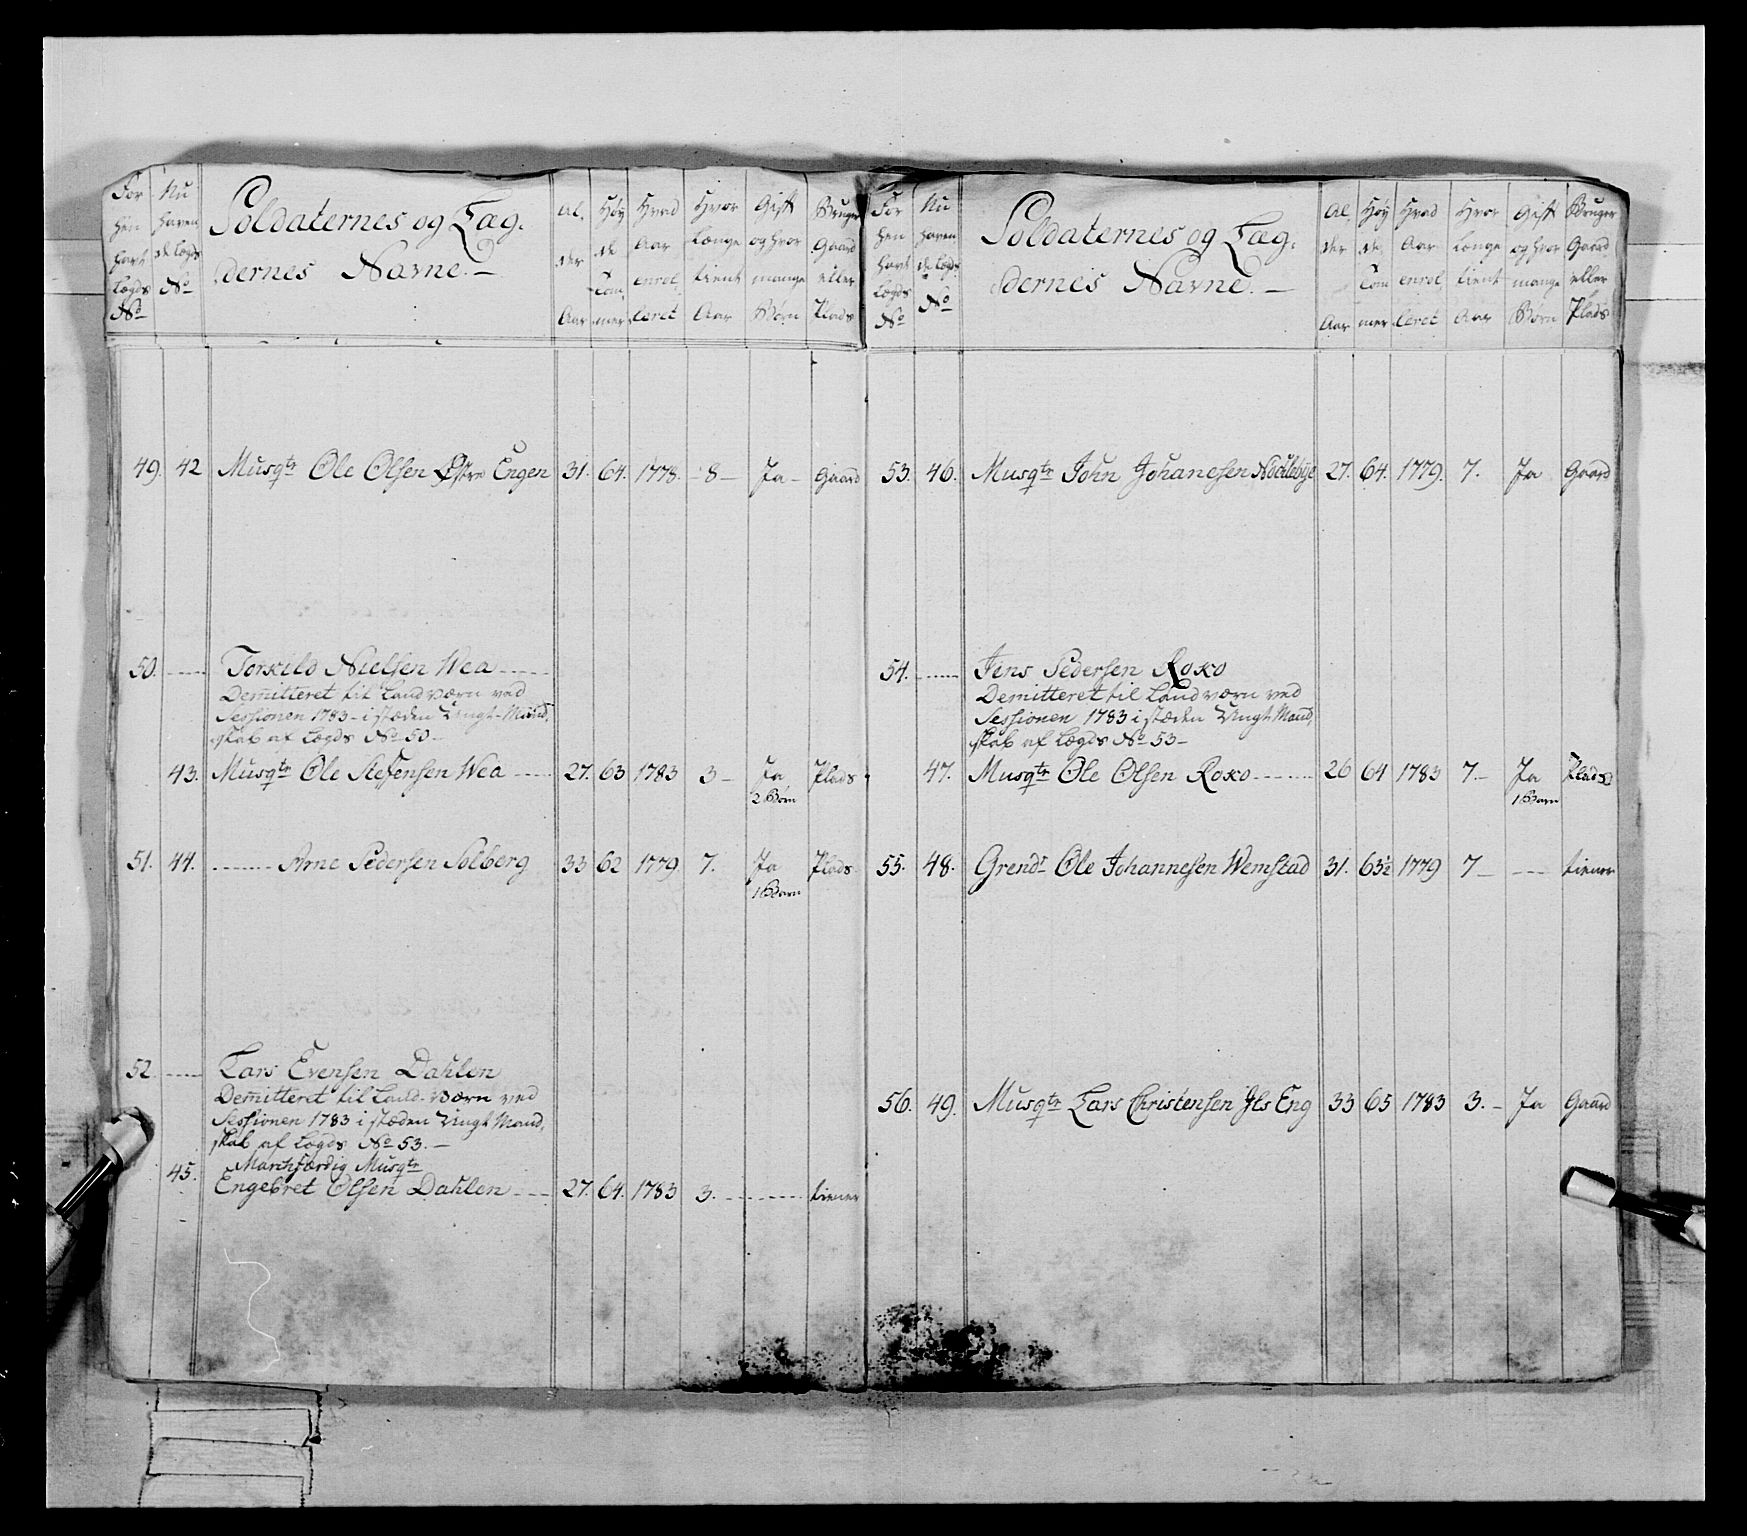 For hen havt Lægds No | Nu haven de Lægds No | Soldaternes og Læg- | Al, der Aar | Høy de Tom, mer | Hvad Aar enrol, leret | Hvor Længe tient Aar | Gift og hvor mange Børn | Bruger Gaard eller Plads
dernes Navne. –
49. 42 Musqtr Ole Olsen Østre Engen 31. 64. 1778. – 8 – Ja – Gaard
50. Torkild Nielsen Wea
Demitteret til Landværn ved
Sessionen 1783 – i stæden Ungt-Mand,
skab af Lægds No 50 –
43. Musqtr Ole Steffensen Wea 27. 63 1783 3 – Ja Plads
2 Børn
51. 44. Arne Pedersen Solberg 33 62 1779 7. Ja Plads
1 Barn
52. Lars Evensen Dahlen
Demitteret til Land-Værn ved
Sessionen 1783 i stæden Ungt Mand,
skab af Lægds No 53. –
Marchfærdig Musqtr
45. Engebret Olsen Dahlen 27. 64. 1783 3. tiener
For hen havt Lægds No | Nu haven de Lægds No | Soldaternes og Læg- | Al, der Aar | Høy de Tom mer | Hvad Aar enrol, leret | Hvor Længe tient Aar | Gift og hvor mange Børn | Bruger Gaard eller Plads
dernes Navne. –
53. 46. Musqtr John Johanesen 27. 64. 1779. 7. Ja Gaard
54. Jens Pedersen Roxo
Demitteret til Landværn ved
Sessionen 1783 i stæden Ungt Mand,
skab af Lægds No 53 –
47. Musqtr Ole Olsen Roxo 26 64 1783 7. – Ja Plads
1 Barn
55. 48. Grendr Ole Johannesen Wemstad 31. 63½ 1779 7 – tiener
56. 49. Musqtr Lars Christensen Jls Eng 33 65 1783 3. – Ja Gaard